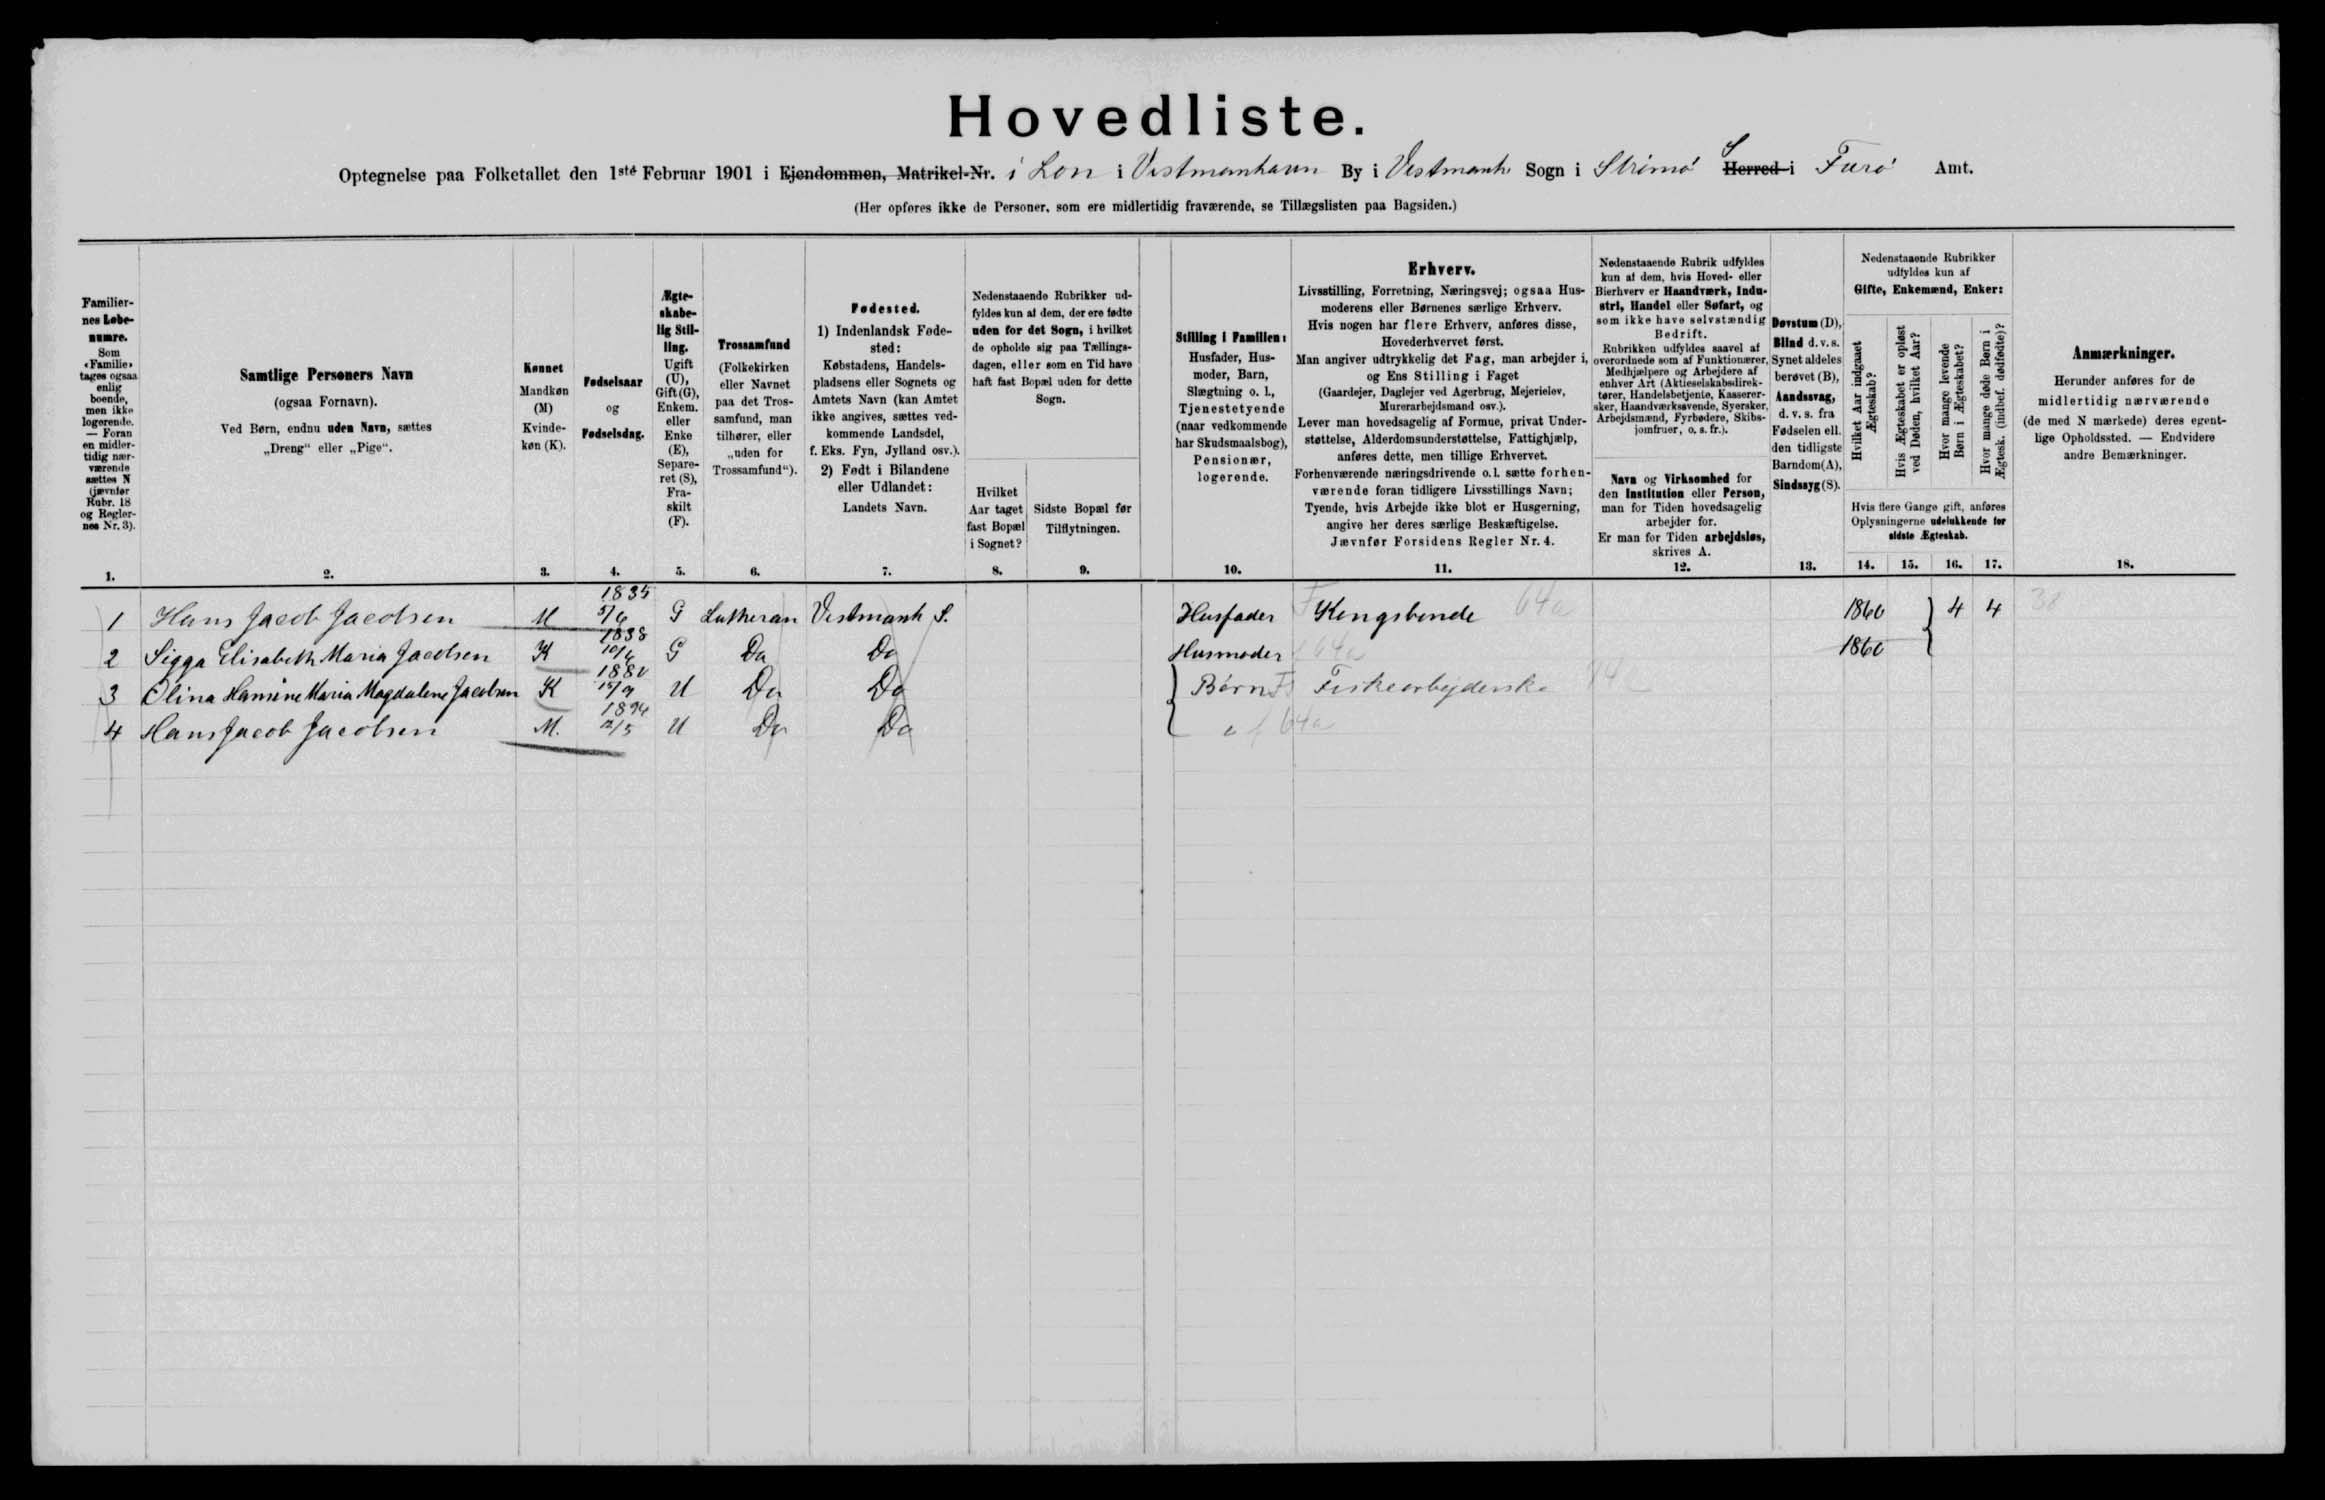 Hovedliste.
Optegnelse paa Folketallet den 1ste Februar 1901 i Ejendommen, Matrikel-Nr. i Lon i Vestmanhavn By i Vestmanh Sogn i Strömö S Herred i Færö Amt.
(Her opføres ikke de Personer, som ere midlertidig fraværende, se Tillægslisten paa Bagsiden.)
Familiernes Løbenumre.
Som «Familie» tages ogsaa enlig boende, men ikke logerende. — Foran en midlertidig nærværende sættes N (jævnfør Rubr. 18 og Reglernes Nr. 3).
1.
Samtlige Personers Navn
(ogsaa Fornavn).
Ved Børn, endnu uden Navn, sættes
„Dreng“ eller „Pige“.
2.
Kønnet
Mandkøn
(M)
Kvindekøn (K).
3.
Fødselsaar
og
Fødselsdag.
4.
Ægteskabelig Stilling.
Ugift (U), Gift (G), Enkem. eller Enke (E), Separeret (S), Fraskilt (F).
5.
Trossamfund
(Folkekirken eller Navnet paa det Trossamfund, man tilhører, eller „uden for Trossamfund“).
6.
Fødested.
1) Indenlandsk Fødested:
Købstadens, Handelspladsens eller Sognets og Amtets Navn (kan Amtet ikke angives, sættes vedkommende Landsdel, f. Eks. Fyn, Jylland osv.).
2) Født i Bilandene eller Udlandet:
Landets Navn.
7.
Nedenstaaende Rubrikker udfyldes kun af dem, der ere fødte uden for det Sogn, i hvilket de opholde sig paa Tællingsdagen, eller som en Tid have haft fast Bopæl uden for dette Sogn.
Hvilket Aar taget fast Bopæl i Sognet?
8.
Sidste Bopæl før Tilflytningen.
9.
Stilling i Familien:
Husfader, Husmoder, Barn, Slægtning o. l., Tjenestetyende (naar vedkommende har Skudsmaalsbog), Pensionær, logerende.
10.
Erhverv.
Livsstilling, Forretning, Næringsvej; ogsaa Husmoderens eller Børnenes særlige Erhverv.
Hvis nogen har flere Erhverv, anføres disse, Hovederhvervet først.
Man angiver udtrykkelig det Fag, man arbejder i, og Ens Stilling i Faget
(Gaardejer, Daglejer ved Agerbrug, Mejerielev, Murerarbejdsmand osv.).
Lever man hovedsagelig af Formue, privat Understøttelse, Alderdomsunderstøttelse, Fattighjælp, anføres dette, men tillige Erhvervet.
Forhenværende næringsdrivende o. l. sætte forhenværende foran tidligere Livsstillings Navn;
Tyende, hvis Arbejde ikke blot er Husgerning, angive her deres særlige Beskæftigelse.
Jævnfør Forsidens Regler Nr. 4.
11.
Nedenstaaende Rubrik udfyldes kun af dem, hvis Hoved- eller Bierhverv er Haandværk, Industri, Handel eller Søfart, og som ikke have selvstændig Bedrift.
Rubrikken udfyldes saavel af overordnede som af Funktionærer, Medhjælpere og Arbejdere af enhver Art (Aktieselskabsdirektører, Handelsbetjente, Kasserersker, Haandværkssvende, Syersker, Arbejdsmænd, Fyrbødere, Skibsjomfruer, o. s. fr.).
Navn og Virksomhed for den Institution eller Person, man for Tiden hovedsagelig arbejder for.
Er man for Tiden arbejdsløs, skrives A.
12.
Døvstum (D), Blind d. v. s. Synet aldeles berøvet (B), Aandssvag, d. v. s. fra Fødselen ell. den tidligste Barndom (A), Sindssyg (S).
13.
Nedenstaaende Rubrikker udfyldes kun af
Gifte, Enkemænd, Enker:
Hvilket Aar indgaaet Ægteskab?
Hvis Ægteskabet er opløst ved Døden, hvilket Aar?
Hvor mange levende Børn i Ægteskabet?
Hvor mange døde Børn i Ægtesk. (indbef. dødfødte)?
Hvis flere Gange gift, anføres Oplysningerne udelukkende for sidste Ægteskab.
14. 15. 16. 17.
Anmærkninger.
Herunder anføres for de midlertidig nærværende (de med N mærkede) deres egentlige Opholdssted. — Endvidere andre Bemærkninger.
18.
1 Hans Jacob Jacobsen M 1835 5/6 G Lutheran Vestmanh S. Husfader F Kongsbonde 64a 1860 } 4 4 38
2 Sigga Elisabeth Maria Jacobsen K 1838 10/6 G Do Do Husmoder 64a 1860
3 Olina Hansine Maria Magdalene Jacobsen K 1880 15/9 U Do Do { Børn Fiskearbejderske
4 Hans Jacob Jacobsen M. 12/5 U Do Do 64a